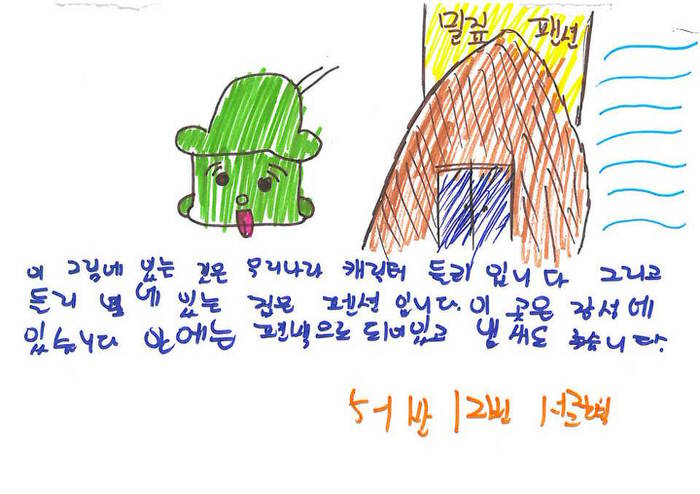 밀짚 팬션
이 그림에 있는 것은 우리나라 캐릭터 둘리 입니다 그리고
둘리 옆에 있는 집은 펜션 입니다. 이 곳은 강성에
있습니다 안에는 편백으로 되어있고 냄새도 좋습니다.
5-1반 12번